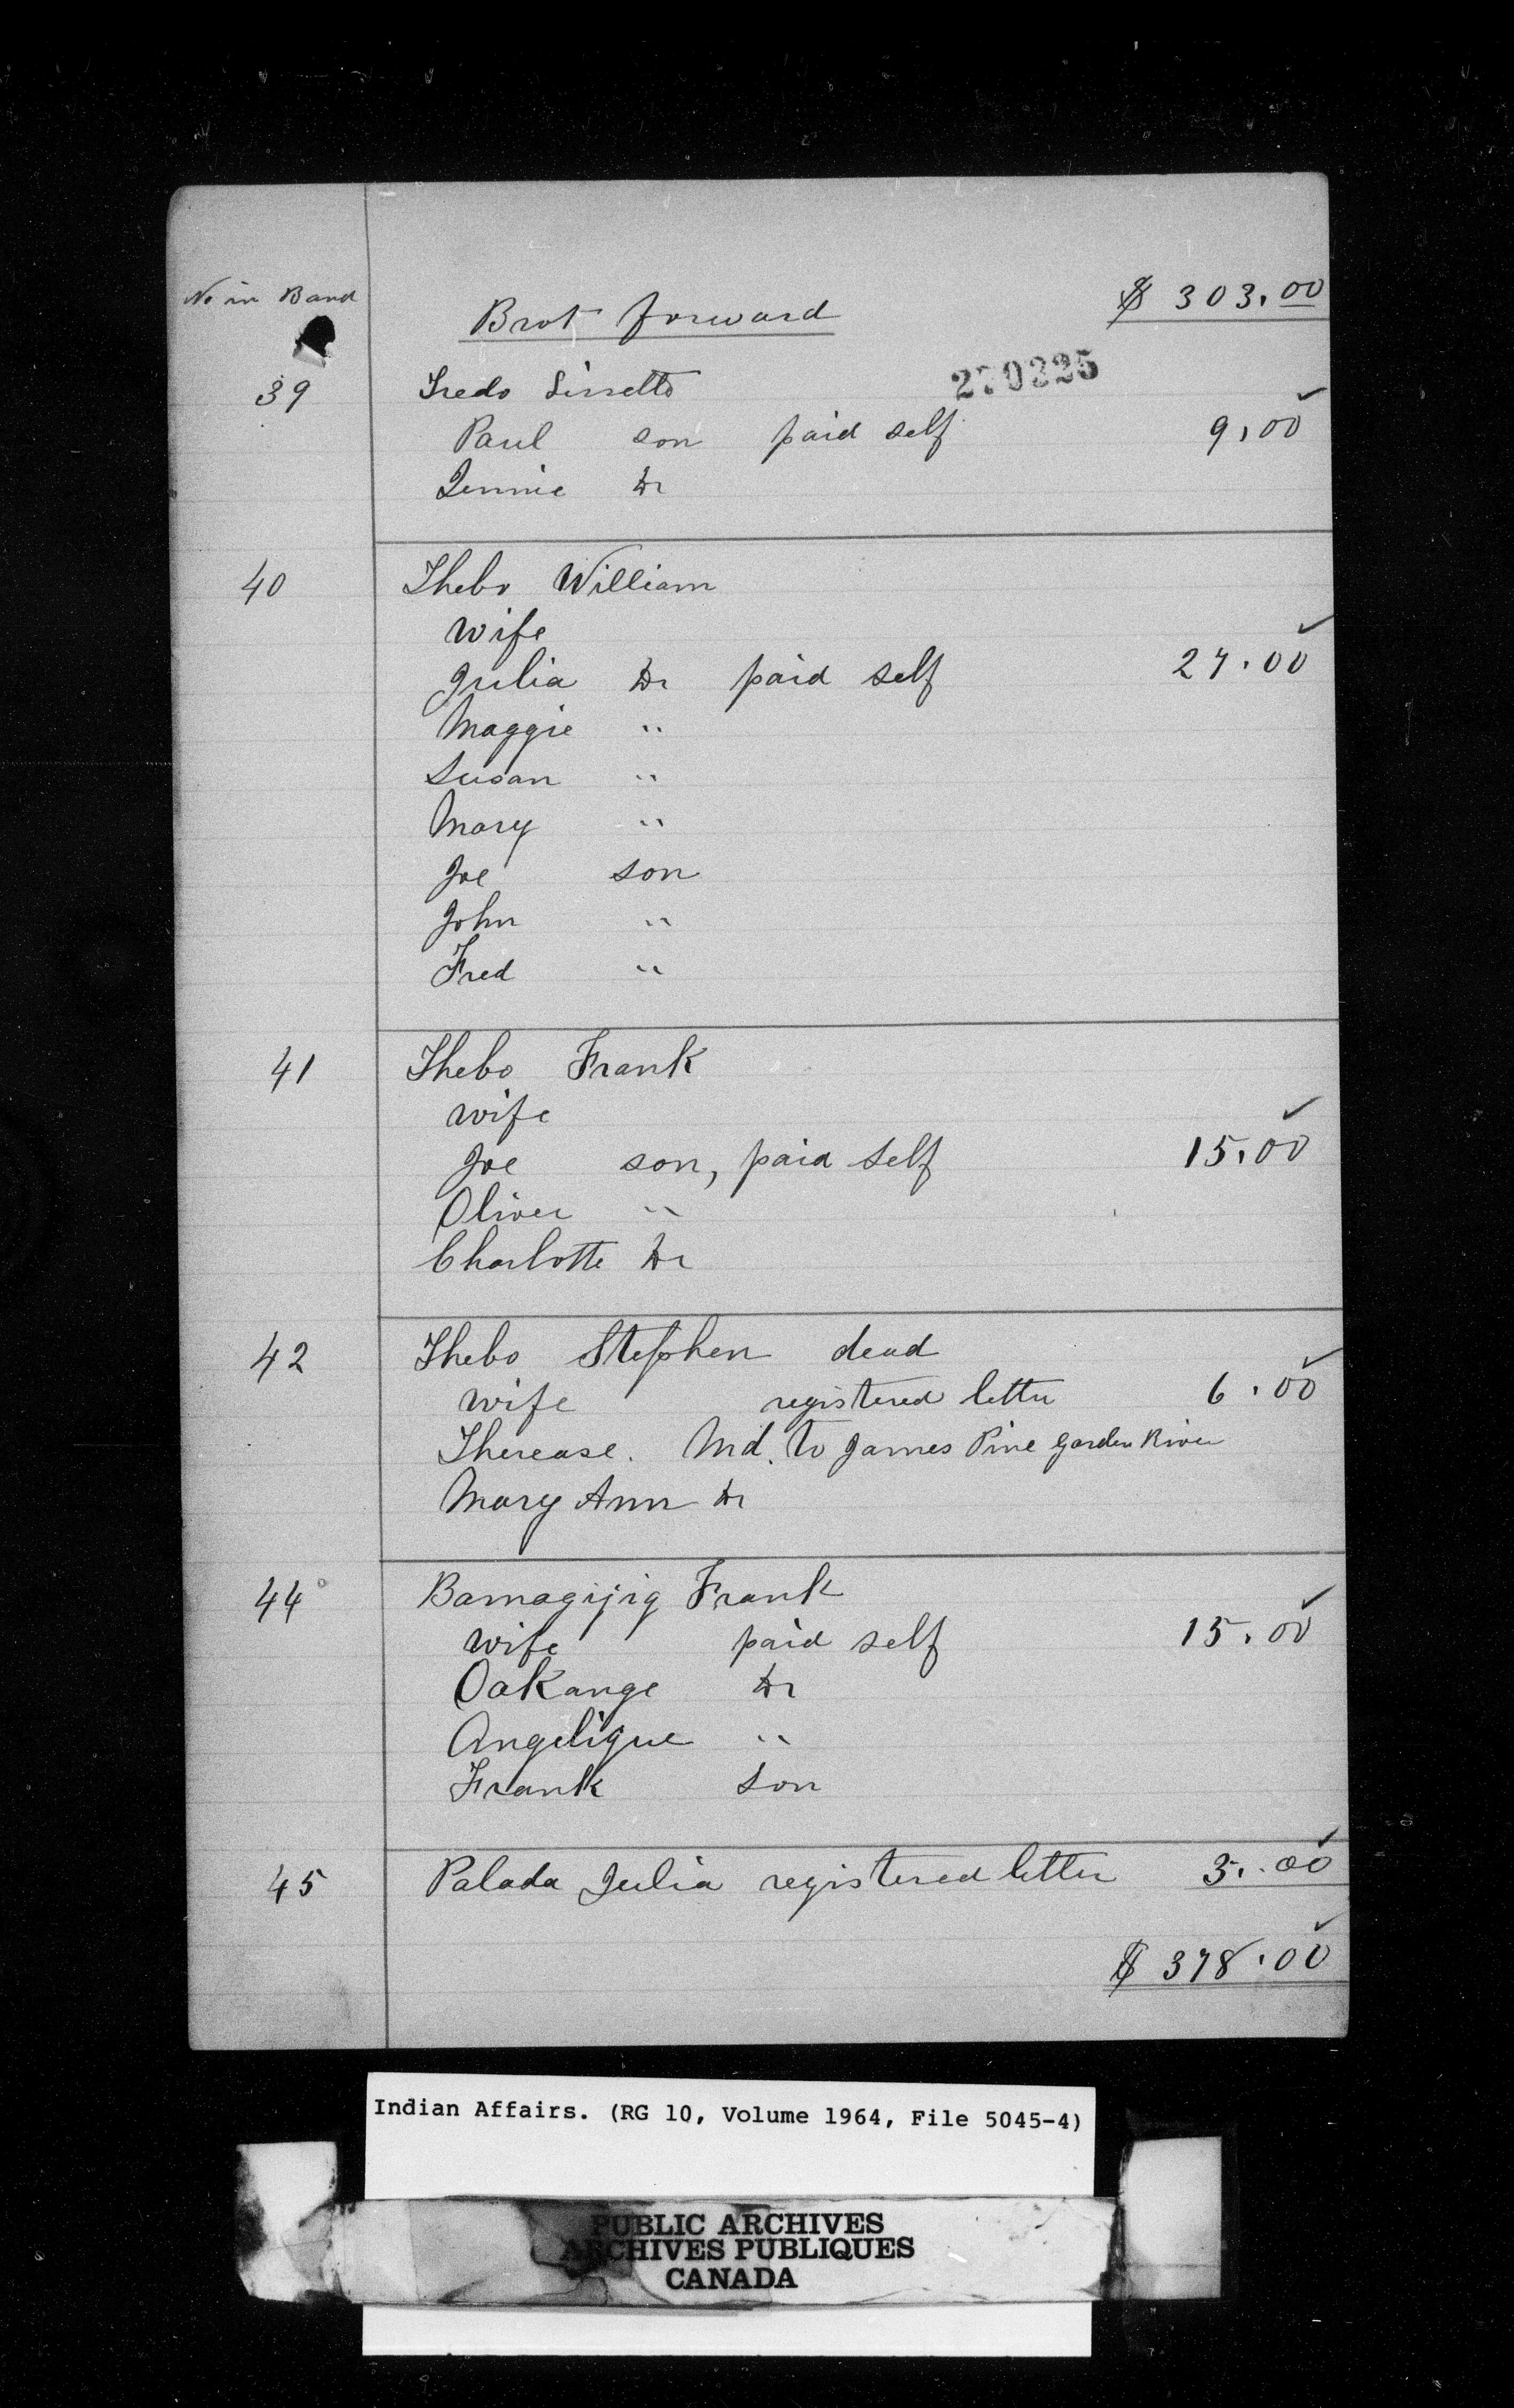 No in Band
Brot forward $ 303.00
270325
39 Tredo Sirretto
Paul son paid self 9.00
Jennie Dr
40 Thebo William
Wife
Julia Dr paid self 27.00
Maggie "
Susan "
Mary "
Joe son
John "
Fred "
41 Thebo Frank
wife
Joe son, paid self 15.00
Oliver "
Charlotte Dr
42 Thebo Stephen dead
wife registered letter 6.00
Therease. Md. to James Pine Garden River
Mary Ann Dr
44 Bamagijig Frank
wife paid self 15.00
Oakange Dr
Angelique "
Frank son
45 Palada Julia registered letter 3.00
$ 378.00
Indian Affairs. (RG 10, Volume 1964, File 5045-4)
PUBLIC ARCHIVES
ARCHIVES PUBLIQUES
CANADA